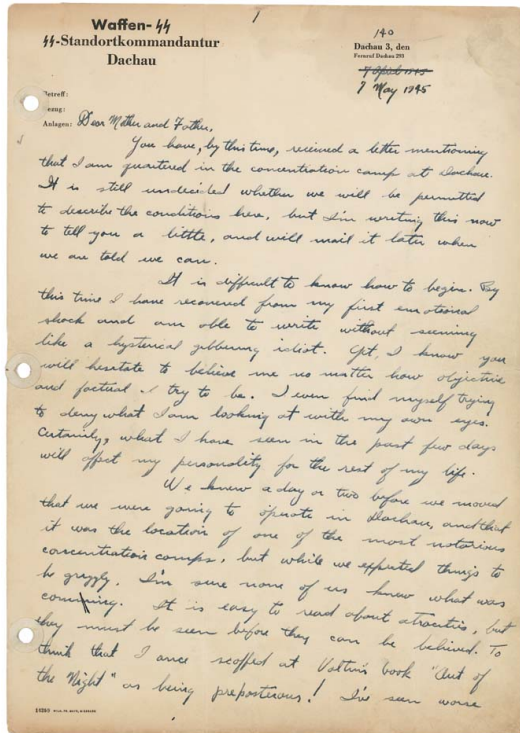 1
Waffen-SS
SS-Standortkommandantur
Dachau
140
Dachau 3, den
Fernruf Dachau 293
7 April 1945
7 May 1945
Betreff:
Bezug:
Anlagen: Dear Mother and Father,
You have, by this time, received a letter mentioning
that I am quartered in the concentration camp at Dachau.
It is still undecided whether we will be permitted
to describe the conditions here, but I'm writing this now
to tell you a little, and will mail it later when
we are told we can.
It is difficult to know how to begin. By
this time I have recovered from my first emotional
shock and am able to write without seeming
like a hysterical gibbering idiot. Yet, I know you
will hesitate to believe me no matter how objective
and factual I try to be. I even find myself trying
to deny what I am looking at with my own eyes.
Certainly, what I have seen in the past few days
will affect my personality for the rest of my life.
We knew a day or two before we moved
that we were going to operate in Dachau, and that
it was the location of one of the most notorious
concentration camps, but while we expected things to
be grizzly, I'm sure none of us knew what was
coming. It is easy to read about atrocities, but
they must be seen before they can be believed. To
think that I once scoffed at Valtin's book "Out of
the Night" as being preposterous! I've seen worse